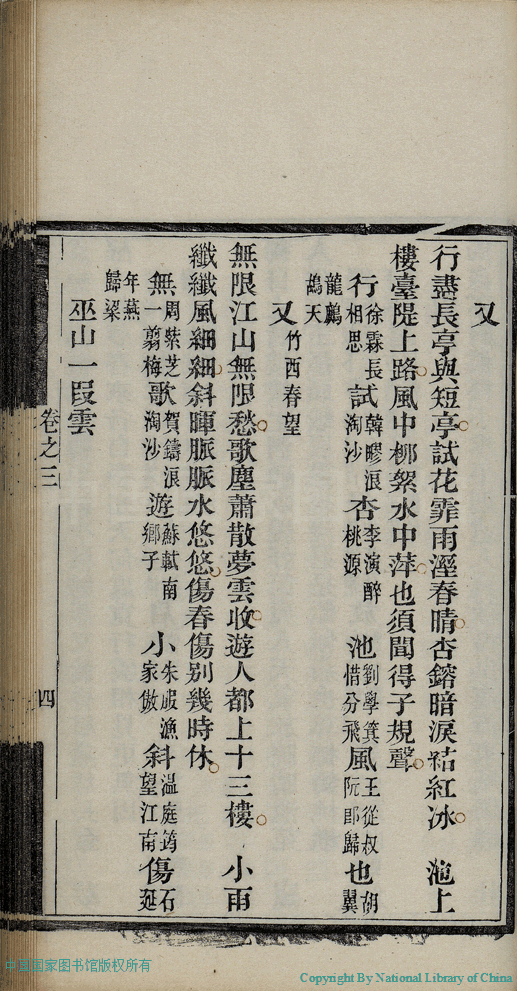 又
行盡長亭與短亭試花霏雨溼春晴杏鎔暗淚結紅冰 池上
樓臺隄上路風中柳絮水中萍也須聞得子規聲
行徐霖長相思試韓疁浪淘沙杏李演醉桃源池劉學箕惜分飛風王從叔阮郎歸也胡翼
龍鷓鴣天
又竹西春望
無限江山無限愁歌塵蕭散夢雲收遊人都上十三樓 小雨
纖纖風細細斜暉脈脈水悠悠傷春傷别幾時休
無周紫芝一翦梅歌賀鑄浪淘沙遊蘇軾南鄉子小朱服漁家傲斜溫庭筠望江南傷石延
年燕歸梁
巫山一段雲
卷之三 四
中国国家图书馆版权所有
Copyright By National Library of China